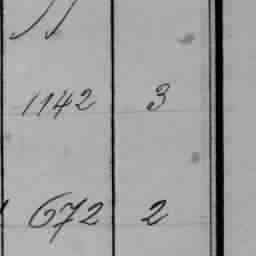 1142 3
672 2